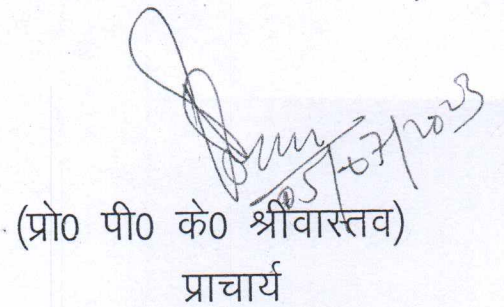 05/07/2023
(प्रो0 पी0 के0 श्रीवास्तव)
प्राचार्य